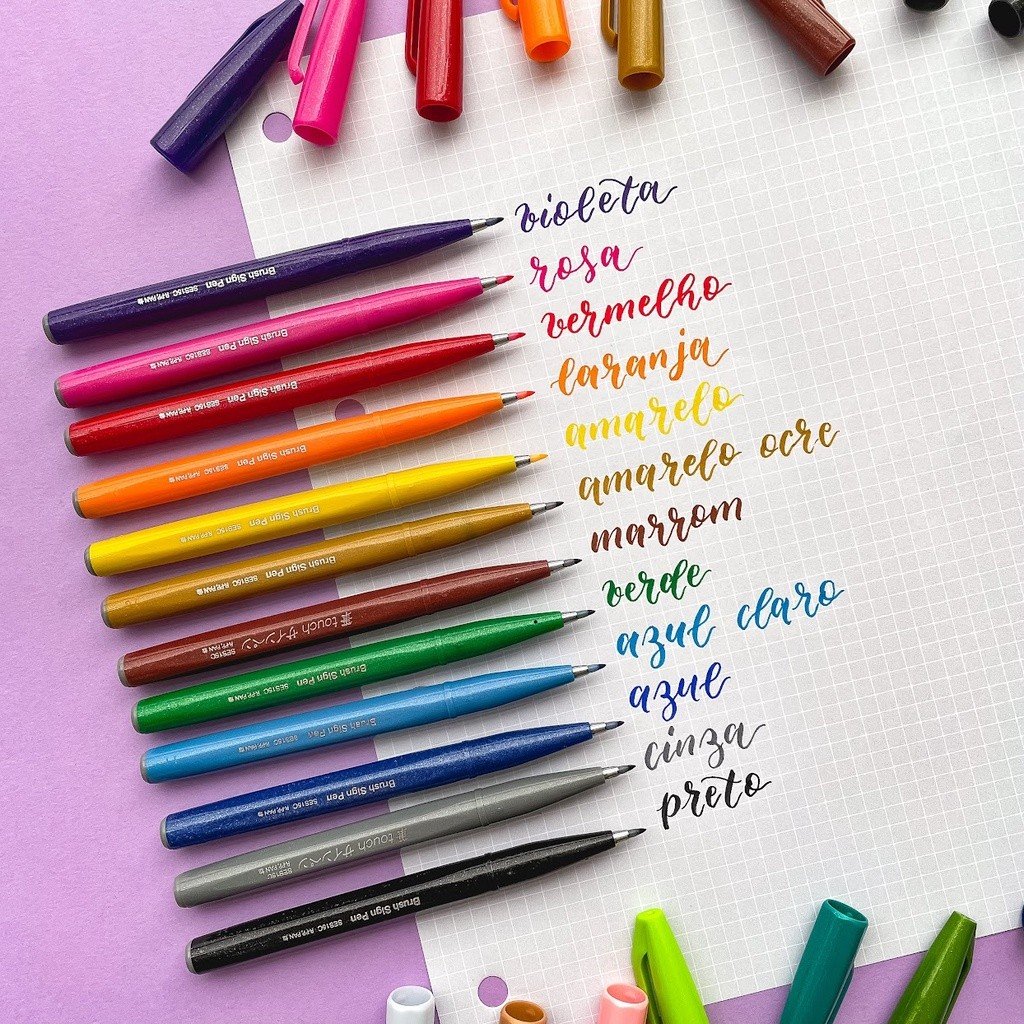 violeta
rosa
vermelho
laranja
amarelo
amarelo ocre
marrom
verde
azul claro
azul
cinza
preto
Brush Sign Pen SES15C
Brush Sign Pen SES15C
Brush Sign Pen SES15C
Brush Sign Pen SES15C
Brush Sign Pen SES15C
Brush Sign Pen SES15C
筆touch サインペン SES15C
Brush Sign Pen SES15C
Brush Sign Pen SES15C
Brush Sign Pen SES15C
筆touch サインペン SES15C
Brush Sign Pen SES15C